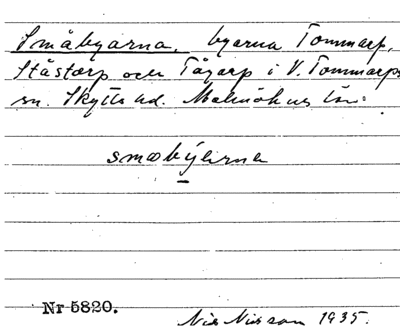 Småbyarna, byarna Tommarp,
Ståstorp och Tågarp i V. Tommarps
sn. Skytts hd. Malmöhus län.
smabýarna
Nr 5820.
Nils Nilsson 1935.